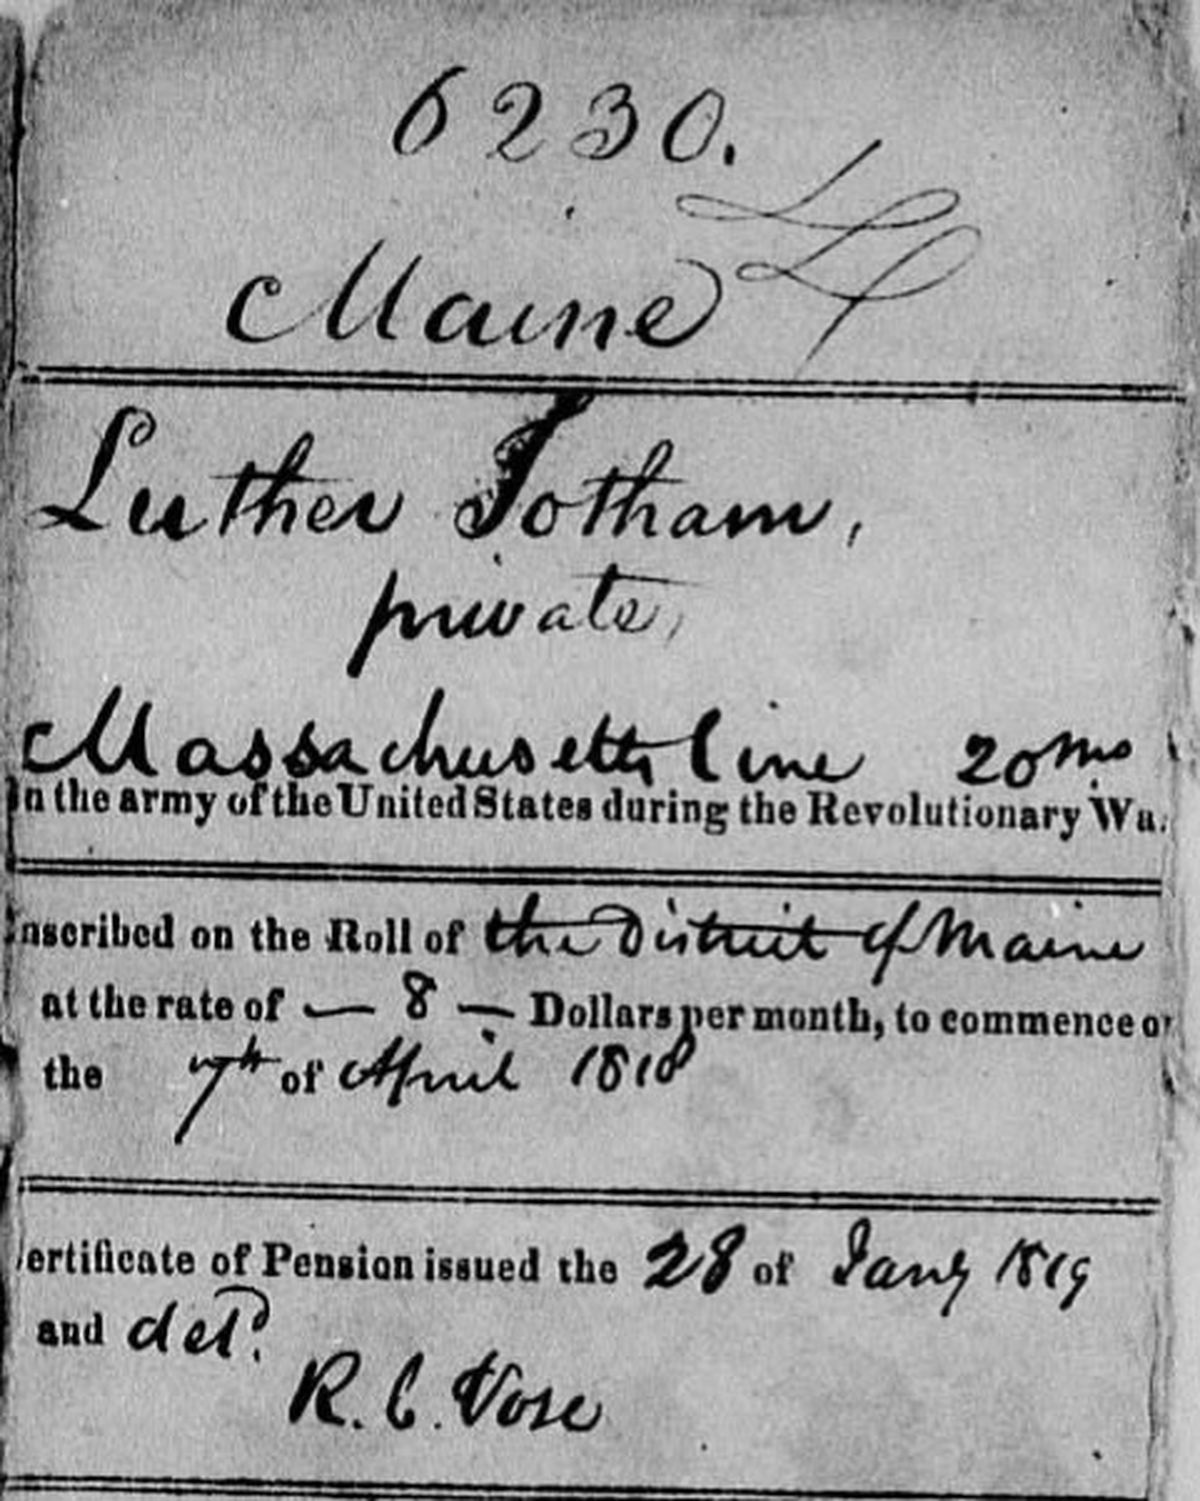 6230.
Maine
Luther Jotham,
private,
Massachusetts line 20 mos
in the army of the United States during the Revolutionary Wa
nscribed on the Roll of the District of Maine
at the rate of — 8 — Dollars per month, to commence on
the 7th of April 1818
ertificate of Pension issued the 28 of Jany 1819
and deld.
R. C. Vose